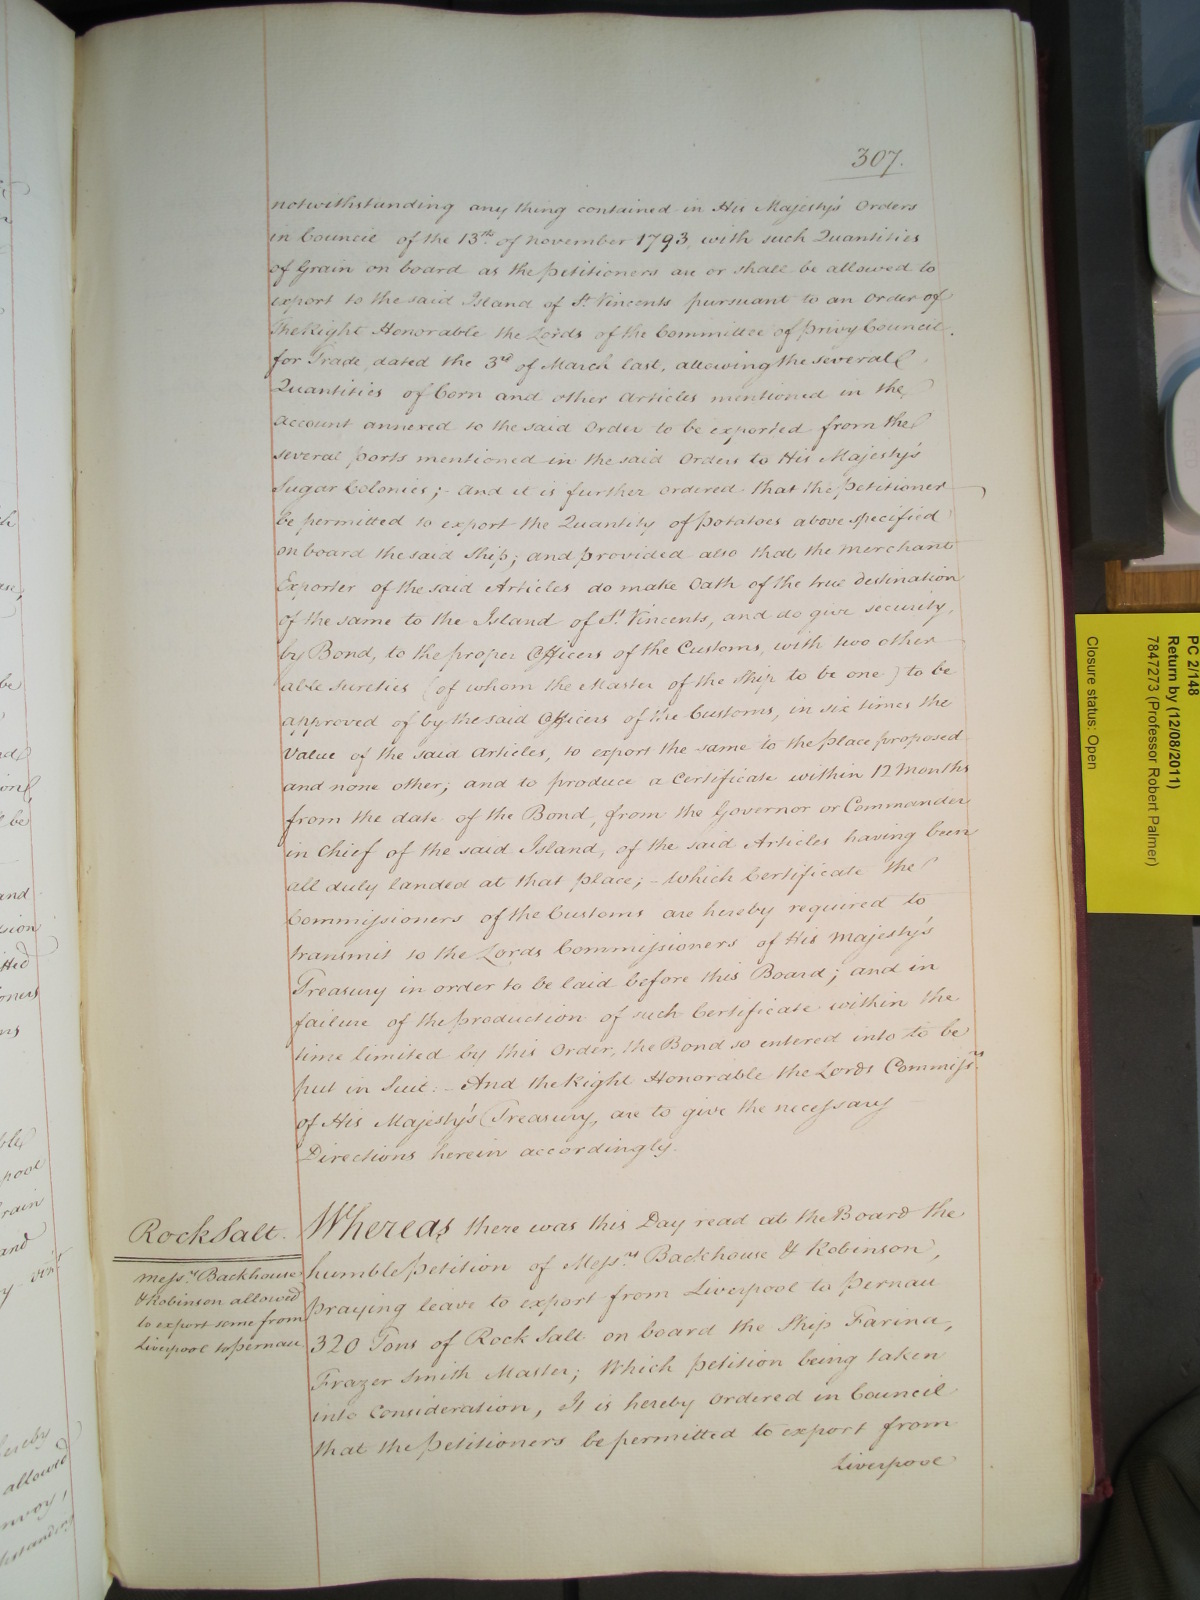 307.
notwithstanding any thing contained in His Majesty's Orders
in Council of the 13th of November 1793, with such Quantities
of Grain on board as the petitioners are or shall be allowed to
export to the said Island of St. Vincents pursuant to an Order of
the Right Honorable the Lords of the Committee of privy Council
for Trade, dated the 3rd of March last, allowing the several
Quantities of Corn and other Articles mentioned in the
account annexed to the said Order to be exported from the
several ports mentioned in the said Orders to His Majesty's
Sugar Colonies; - And it is further ordered that the petitioner
be permitted to export the Quantity of potatoes above specified
on board the said Ship; and provided also that the Merchant
Exporter of the said Articles do make Oath of the true destination
of the same to the Island of St. Vincents, and do give security,
by Bond, to the proper Officers of the Customs, with two other
able Sureties (of whom the Master of the Ship to be one) to be
approved of by the said Officers of the Customs, in six times the
Value of the said Articles, to export the same to the place proposed
and none other, and to produce a Certificate within 12 Months
from the date of the Bond, from the Governor or Commander
in Chief of the said Island, of the said Articles having been
all duly landed at that place; - which Certificate the
Commissioners of the Customs are hereby required to
transmit to the Lords Commissioners of His Majesty's
Treasury in order to be laid before this Board; and in
failure of the production of such Certificate within the
time limited by this Order, the Bond so entered into to be
put in Suit: - And the Right Honorable the Lords Commissrs
of His Majesty's Treasury, are to give the necessary
Directions herein accordingly.
Rock Salt.
Messrs Backhouse
& Robinson allowed
to export some from
Liverpool to pernau
Whereas there was this Day read at the Board the
humble petition of Messrs Backhouse & Robinson,
praying leave to export from Liverpool to pernau
320 Tons of Rock Salt on board the Ship Farina,
Frazer Smith Master; Which petition being taken
into Consideration, It is hereby Ordered in Council
that the petitioners be permitted to export from
Liverpool
PC 2/148
Return by (12/08/2011)
7847273 (Professor Robert Palmer)
Closure status: Open